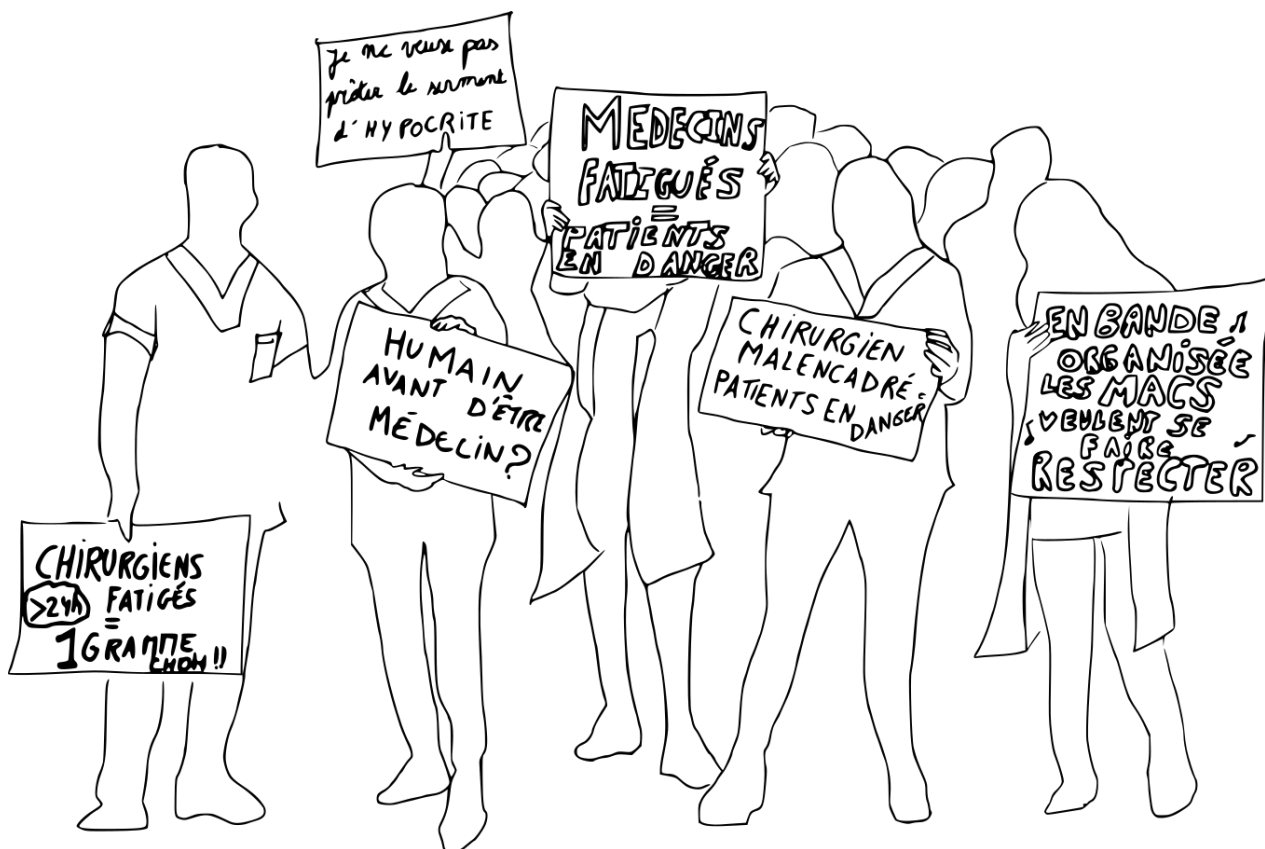 Je ne veux pas
prêter le serment
d'HYPOCRITE
MEDECINS
FATIGUÉS
=
PATIENTS
EN DANGER
HUMAIN
AVANT D'ÊTRE
MÉDECIN?
CHIRURGIEN
MALENCADRÉ =
PATIENTS EN
DANGER
EN BANDE ♫
ORGANISÉE
LES MACS
♪ VEULENT SE
FAIRE ♪
RESPECTER
CHIRURGIENS
>24h FATIGÉS
=
1 GRAMME